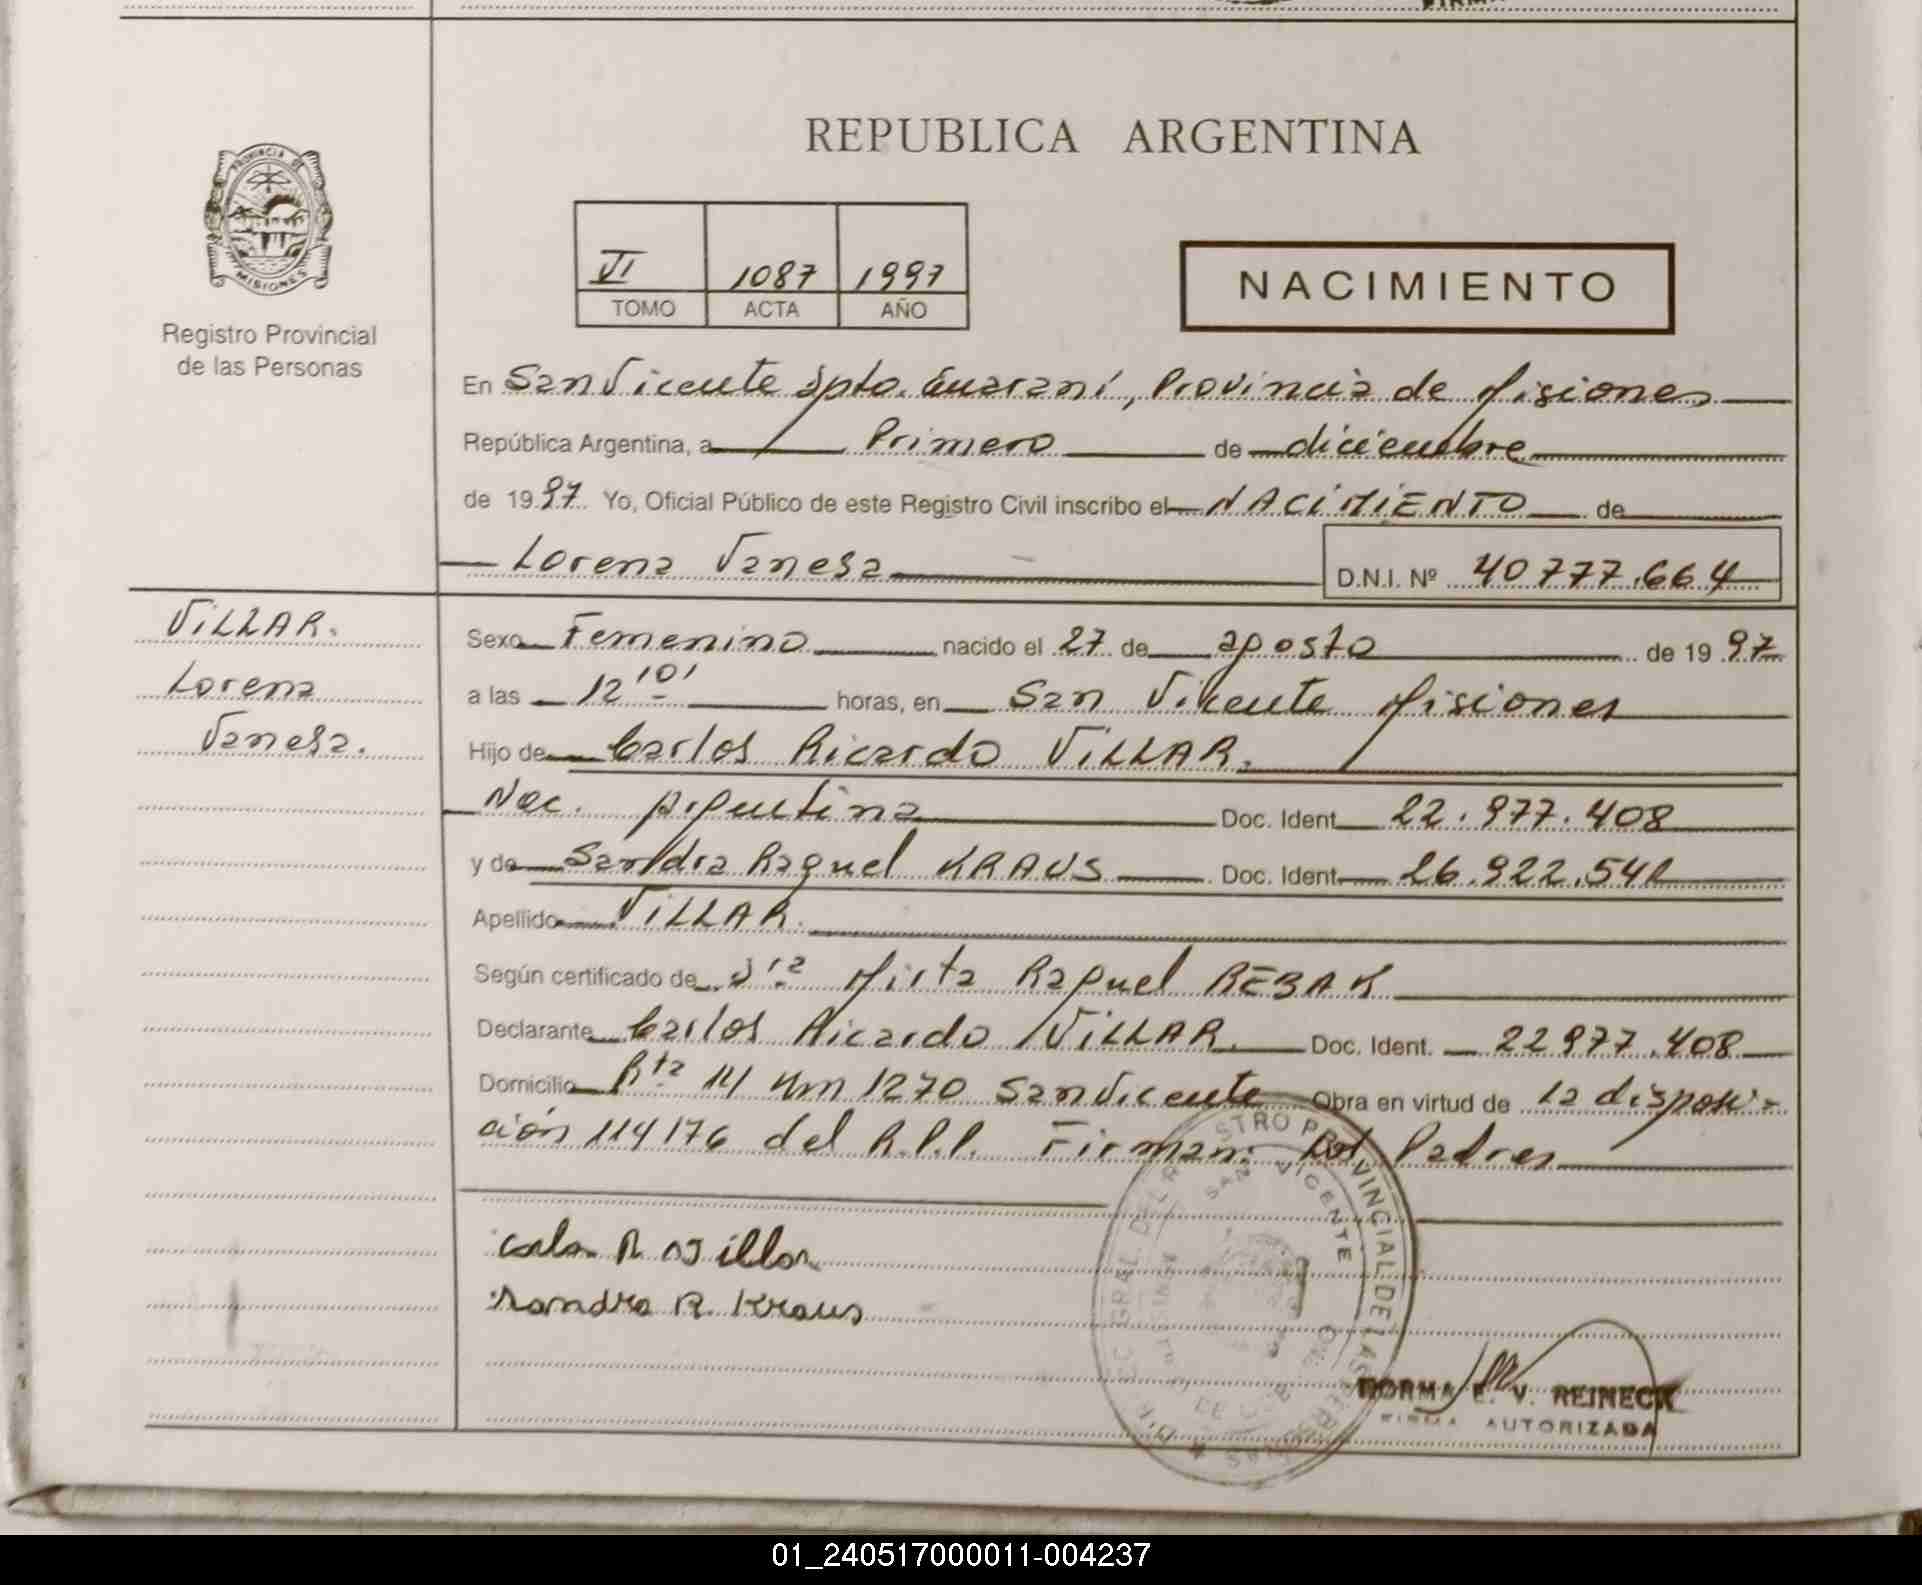 REPUBLICA ARGENTINA
PROVINCIA DE
MISIONES
Registro Provincial
de las Personas
VI 1087 1997
TOMO ACTA AÑO
NACIMIENTO
En San Vicente Dpto. Guaraní, Provincia de Misiones
República Argentina, a Primero de diciembre
de 1997 Yo, Oficial Público de este Registro Civil inscribo el NACIMIENTO de
Lorena Vanesa D.N.I. Nº 40777.664
VILLAR.
Lorena
Vanesa.
Sexo Femenino nacido el 27 de agosto de 1997
a las 12'10' horas, en San Vicente Misiones
Hijo de Carlos Ricardo VILLAR.
Nac. Argentina Doc. Ident. 22.977.408
y de Sandra Raquel KRAUS Doc. Ident. 26.922.541
Apellido VILLAR.
Según certificado de Mirta Raquel
Declarante Carlos Ricardo VILLAR. Doc. Ident. 22977.408
Domicilio Rta 14 Km 1270 San Vicente Obra en virtud de la disposi-
ción 114/76 del R.P.P. Firman: Los Padres
Carlos R Villar
Sandra R. Kraus
SAN VICENTE
NORMA E. V. REINECK
FIRMA AUTORIZADA
01_240517000011-004237